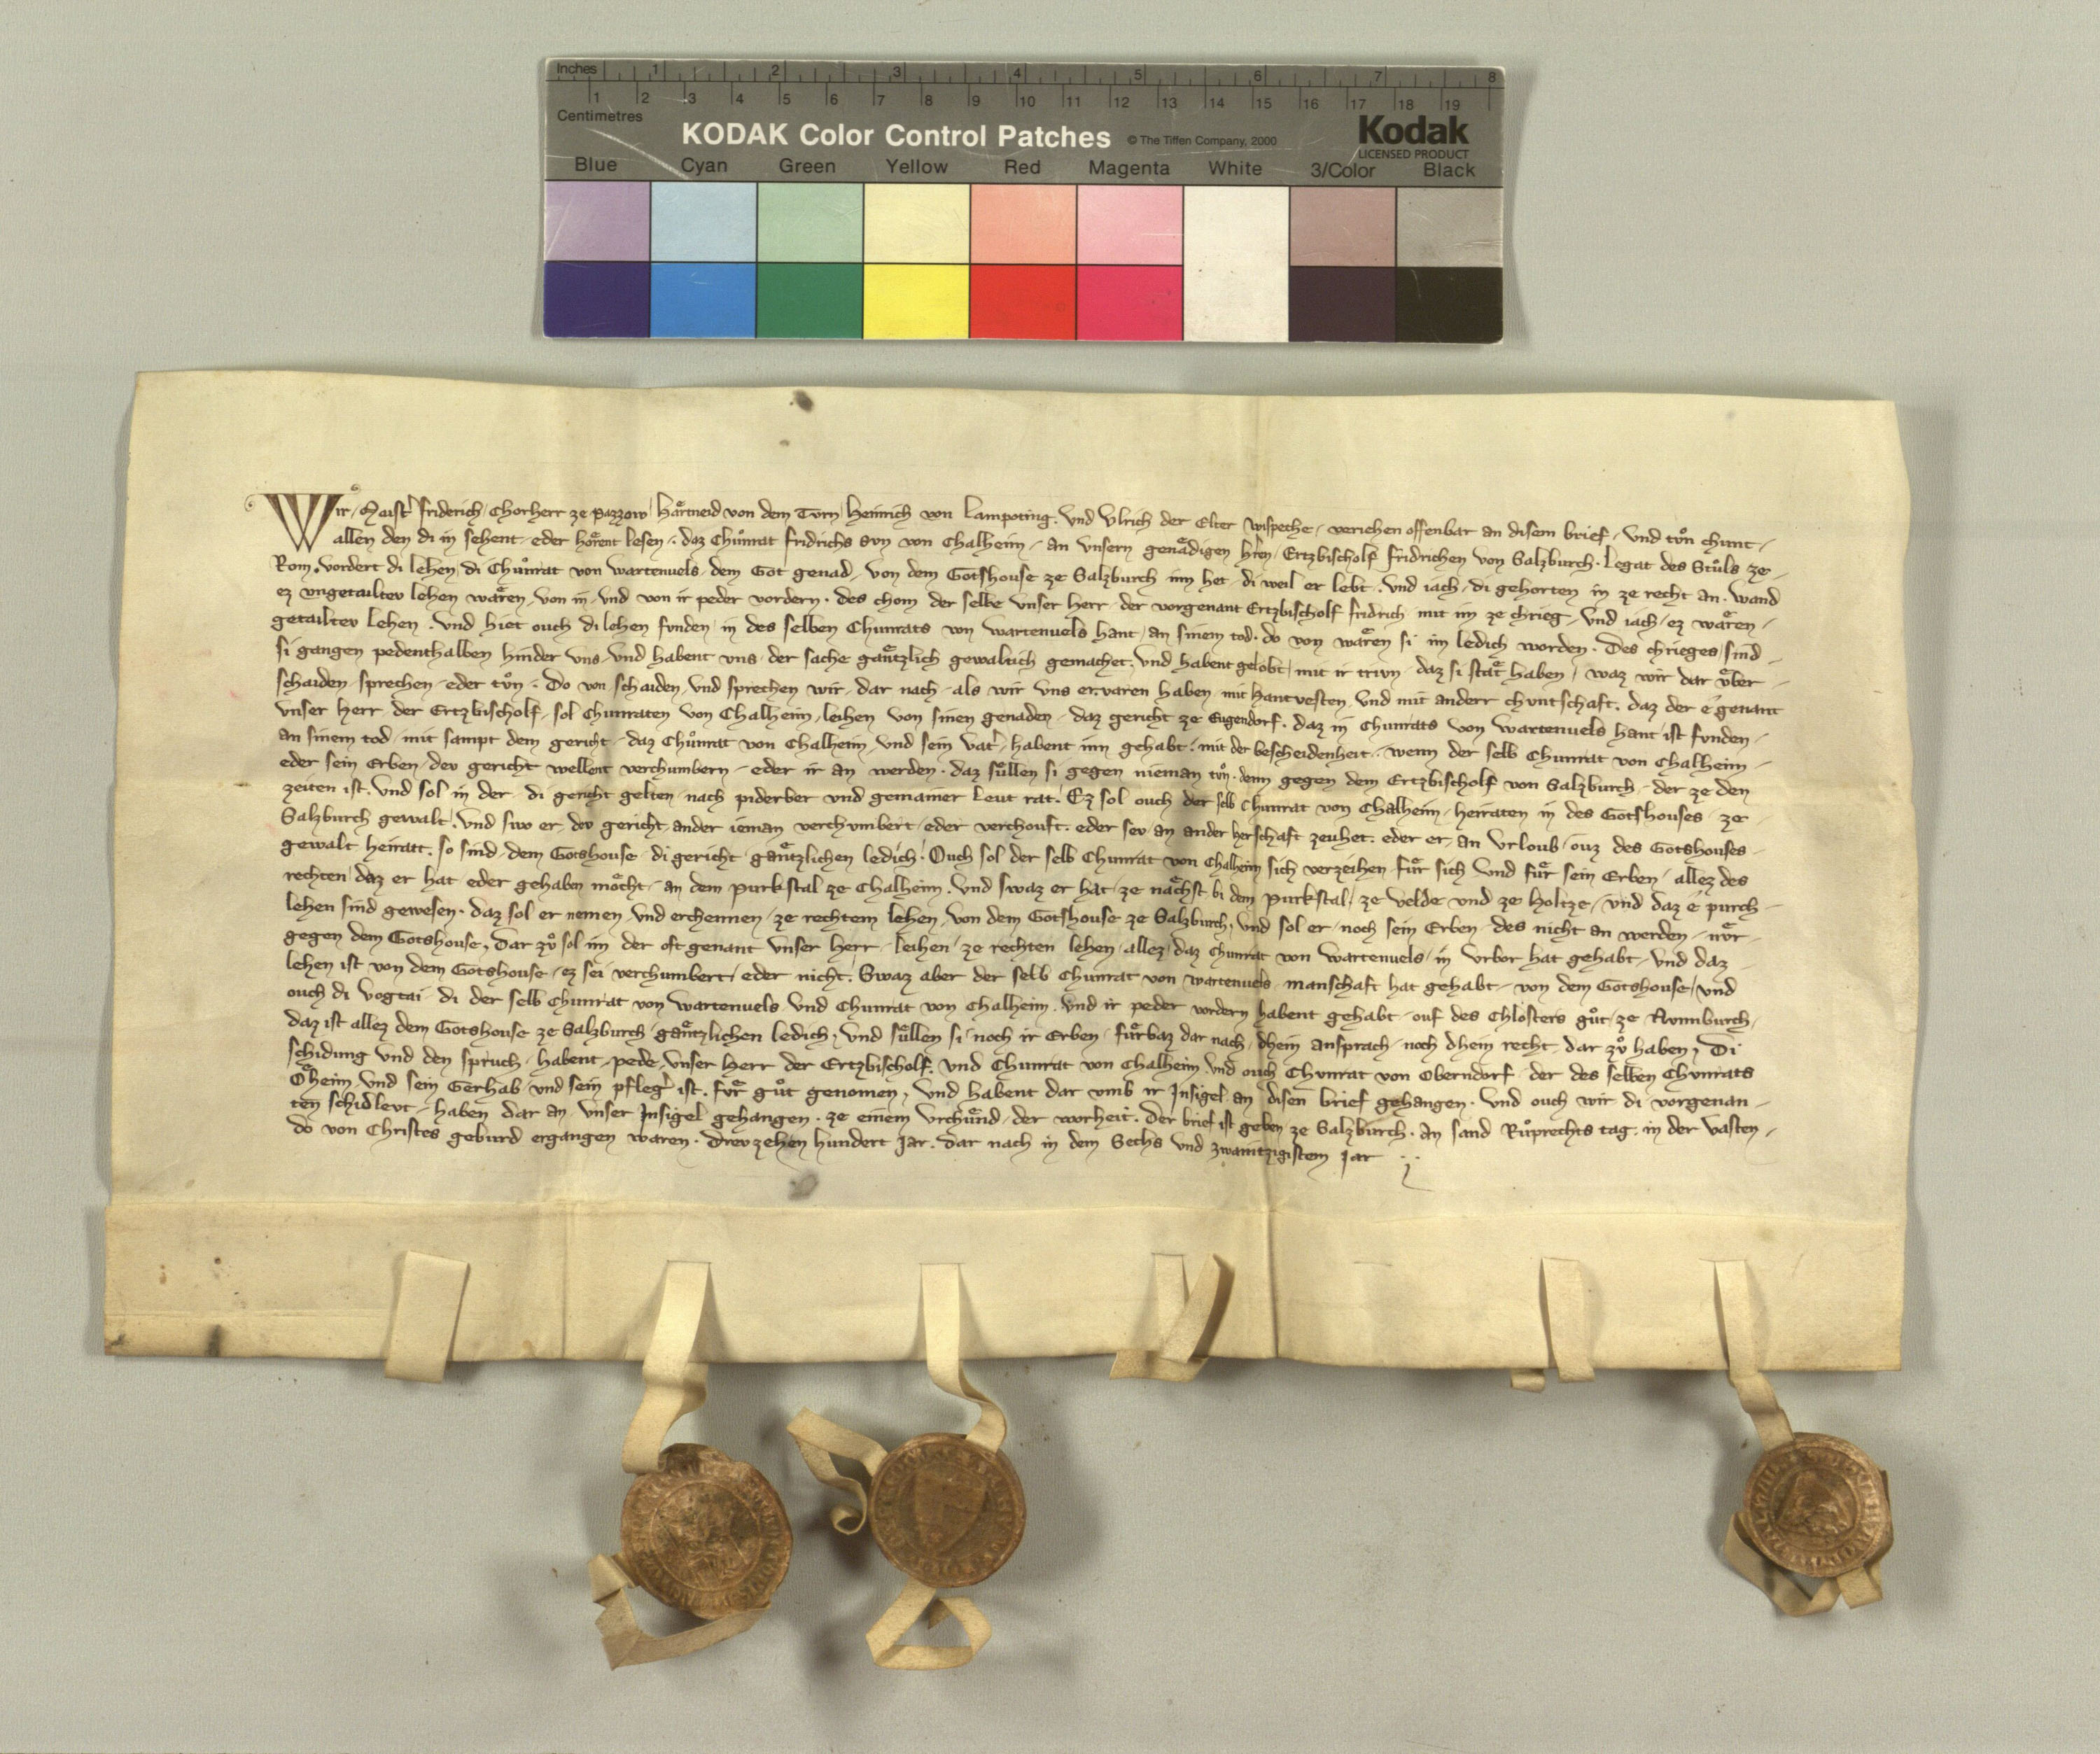 Inches 1 2 3 4 5 6 7 8
1 2 3 4 5 6 7 8 9 10 11 12 13 14 15 16 17 18 19
Centimetres
KODAK Color Control Patches © The Tiffen Company, 2000 Kodak
LICENSED PRODUCT
Blue Cyan Green Yellow Red Magenta White 3/Color Black
Wir Maistͬ Friderich Chorherr ze Pazzow Haͤrtneid von dem Turn Heinrich von Lampoting. Vnd Vlrich der Elter Wispeche veriehen offenbar an disem brief Vnd tuͦn chunt
allen den di in sehent eder hoͤrent lesen. daz Chuͦnrat Fridrichs sun von Chalheim an vnsern genaͤdigen hͬren Ertzbischolf Fridrichen von Salzburch. Legat des Stuͦls ze
Rom. vordert di lehen di Chuͦnrat von Wartenuels dem Got genad von dem Gotshouse ze Salzburch inn het di weil er lebt. Vnd iach di gehorten in ze recht an. wand
ez vngetailtev lehen waͤren von in vnd von ir peder vordern. des chom der selbe vnser herr der vorgenant Ertzbischolf Fridrich mit im ze chrieg Vnd iach ez waͤren
getailtev lehen. Vnd hiet ouch di lehen funden in des selben Chunrats von Wartenuels hant an sinem tod. do von waͤren si im ledich worden. Des chrieges sind
si gangen pedenthalben hinder vns vnd habent vns der sache gaͤntzlich gewaltich gemachet. Vnd habent gelobt mit ir triwn daz si staͤt haben waz wir dar vͤber
schaiden sprechen eder tuͦn. Do von schaiden vnd sprechen wir dar nach als wir vns ervaren haben mit hantuesten vnd mit anderr chuntschaft. daz der e genant
vnser herr der Ertzbischolf sol Chunraten von Chalheim leihen von sinen genaden daz gericht ze Eugendorf. daz in Chunrats von Wartenuels hant ist funden
an sinem tod mit sampt dem gericht daz Chuͦnrat von Chalheim vnd sein vatͬ habent inn gehabt. mit der bescheidenheit. wenn der selb Chunrat von Chalheim
eder sein Erben dev gericht wellent verchumbern eder ir an werden. daz suͤllen si gegen nieman tuͦn. denn gegen dem Ertzbischolf von Salzburch der ze den
zeiten ist. Vnd sol in der di gericht gelten nach piderber vnd gemainer Leut rat. Ez sol ouch der selb Chunrat von Chalheim heiraten in des Gotshouses ze
Salzburch gewalt. Vnd swo er dev gericht ander ieman verchumbert eder verchouft. eder sev an ander herschaft zeuhet. eder er an vrloub ouz des Gotshouses
gewalt heiratt. so sind dem Gotshouse di gericht gaͤntzlichen ledich. Ouch sol der selb Chunrat von Chalheim sich verzeihen fuͤr sich vnd fuͤr sein Erben allez des
rechten daz er hat eder gehaben moͤcht an dem purkstal ze Chalheim. Vnd swaz er hat ze naͤchst bi dem purkstal ze velde vnd ze holtze vnd daz e purch
lehen sind gewesen. daz sol er nemen vnd erchennen ze rechtem lehen von dem Gotshouse ze Salzburch, vnd sol er noch sein Erben des nicht an werden nuͤr
gegen dem Gotshouse. Dar zuͦ sol im der oft genant vnser herr leihen ze rechten lehen allez daz Chunrat von Wartenuels in vrbor hat gehabt vnd daz
lehen ist von dem Gotshouse ez sei verchumbert eder nicht. Swaz aber der selb Chunrat von Wartenuels manschaft hat gehabt von dem Gotshouse vnd
ouch di Vogtai di der selb Chunrat von Wartenuels vnd Chunrat von Chalheim vnd ir peder vordern habent gehabt ouf des Chlosters guͦt ze Nunnburch
daz ist allez dem Gotshouse ze Salzburch gaͤntzlichen ledich. Vnd suͤllen si noch ir Erben fuͤrbaz dar nach dhein ansprach noch dhein recht dar zuͦ haben. Di
schidung vnd den spruch habent pede vnser herr der Ertzbischolf. vnd Chunrat von Chalheim vnd ouch Chunrat von Oberndorf der des selben Chunrats
Oͤheim vnd sein Gerhab vnd sein pflegͬ ist. fuͤr guͦt genomen, Vnd habent dar vmb ir Insigel an disen brief gehangen. Vnd ouch wir di vorgenan
ten schidleut haben dar an vnser Insigel gehangen. ze einem vrchuͤnd der worheit. Der brief ist geben ze Salzburch. An sand Ruͦprechts tag. in der vasten
do von Christes geburd ergangen waren. Drevzehen hundert Jar. dar nach in dem Sechs vnd zwaintzigistem Jar